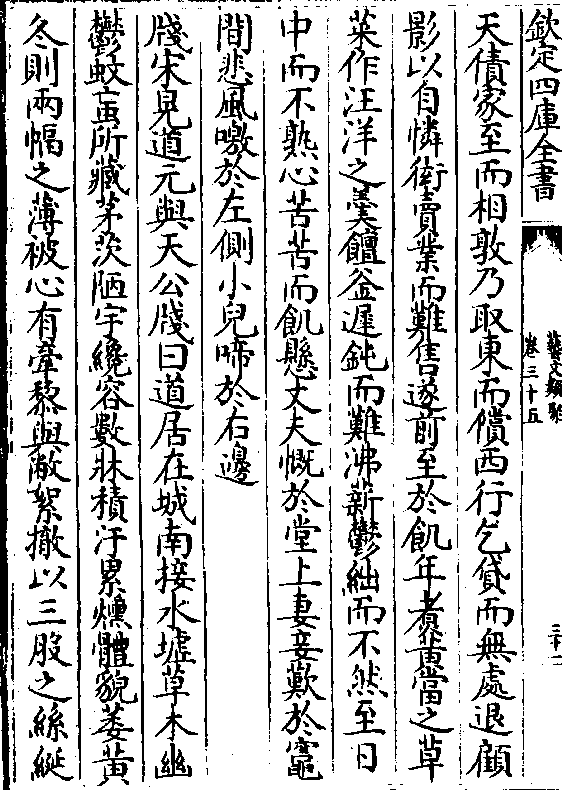 欽定四庫全書
藝文類聚
卷三十五
天債家至而相敦乃取東而償西行乞貸而無處退顧
影以自憐衒賣業而難售遂前至於飢年煮黄當之草
萊作汪洋之羹饘釜遲鈍而難沸薪鬱絀而不然至日
中而不熟心苦苦而飢懸丈夫慨於堂上妻妾歎於竈
間悲風噭於左側小兒啼於右邊
牋宋見道元與天公牋曰道居在城南接水墟草木幽
鬱蚊䖟所藏茅茨陋宇纔容數牀積汗累燻體貌萎黄
冬則兩幅之薄被心有牽黎與敝絮撤以三股之絲綖